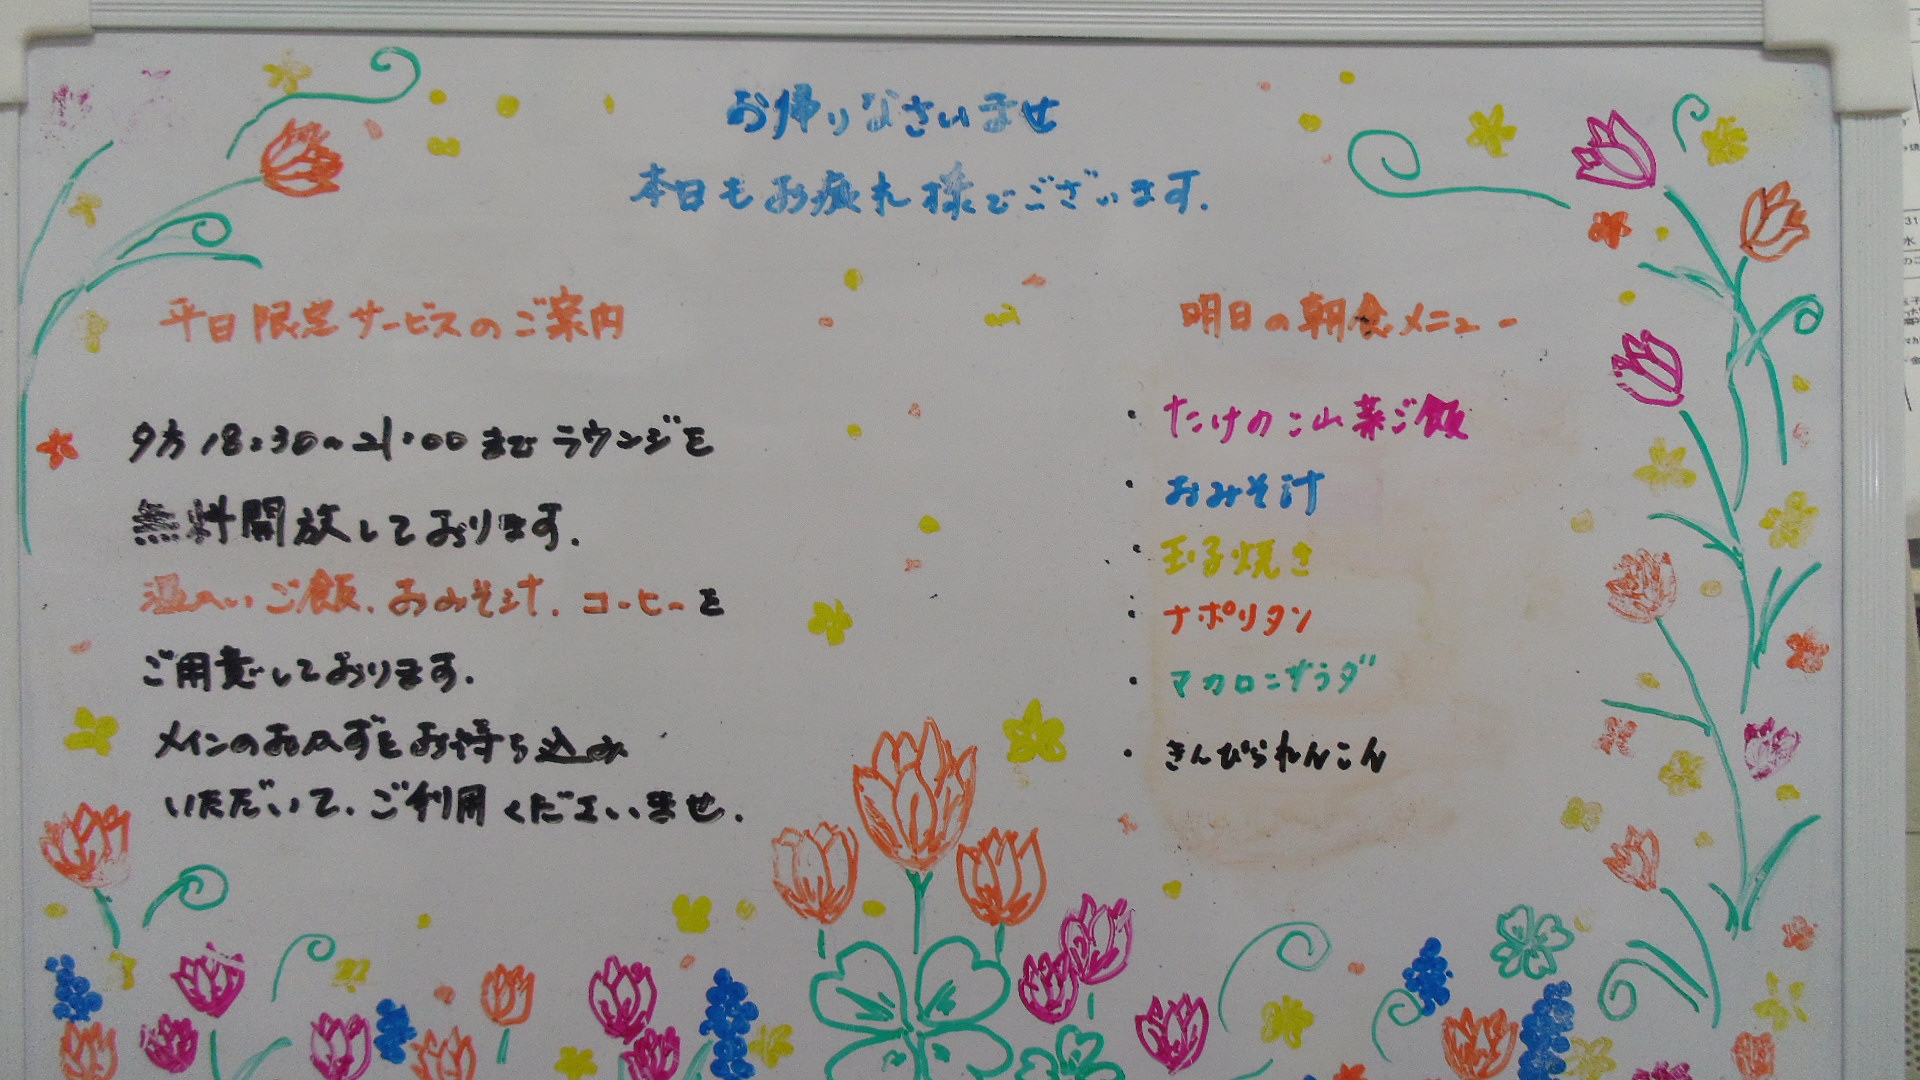 お帰りなさいませ
本日もお疲れ様でございます.
平日限定サービスのご案内
夕方18:30~21:00までラウンジを
無料開放しております.
温かいご飯.おみそ汁.コーヒーを
ご用意しております.
メインのおかずをお持ち込み
いただいて.ご利用くださいませ.
明日の朝食メニュー
・たけのこ山菜ご飯
・おみそ汁
・玉子焼き
・ナポリタン
・マカロニサラダ
・きんぴられんこん